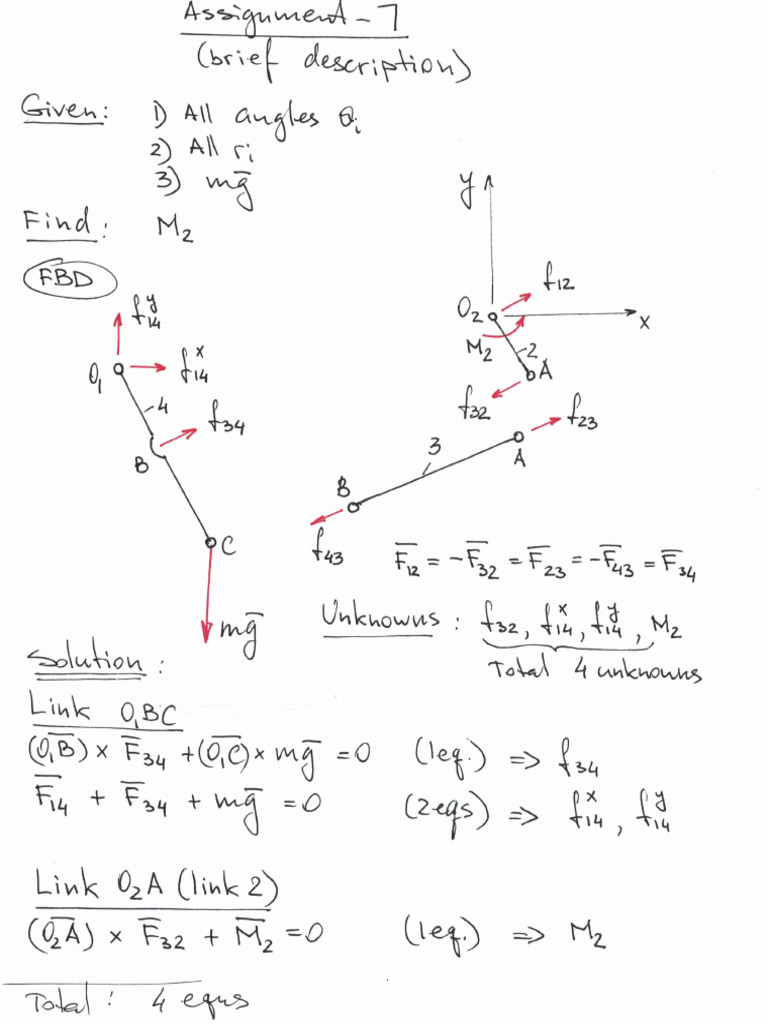 Assignment - 7
(brief description)
Given: 1) All angles θᵢ
2) All rᵢ
3) mg̅
Find: M₂
FBD
y
x
O₂
f₁₂
M₂
2
A
f₃₂
f₁₄ʸ
O₁
f₁₄ˣ
4
f₃₄
B
C
mg̅
3
f₂₃
A
B
f₄₃
F̅₁₂ = -F̅₃₂ = F̅₂₃ = -F̅₄₃ = F̅₃₄
Unknowns: f₃₂, f₁₄ˣ, f₁₄ʸ, M₂
Total 4 unknowns
Solution:
Link O₁BC
(O̅₁B̅) × F̅₃₄ + (O̅₁C̅) × mg̅ = 0 (1eq.) => f₃₄
F̅₁₄ + F̅₃₄ + mg̅ = 0 (2eqs) => f₁₄ˣ, f₁₄ʸ
Link O₂A (link 2)
(O̅₂A̅) × F̅₃₂ + M̅₂ = 0 (1eq.) => M₂
Total: 4 eqns